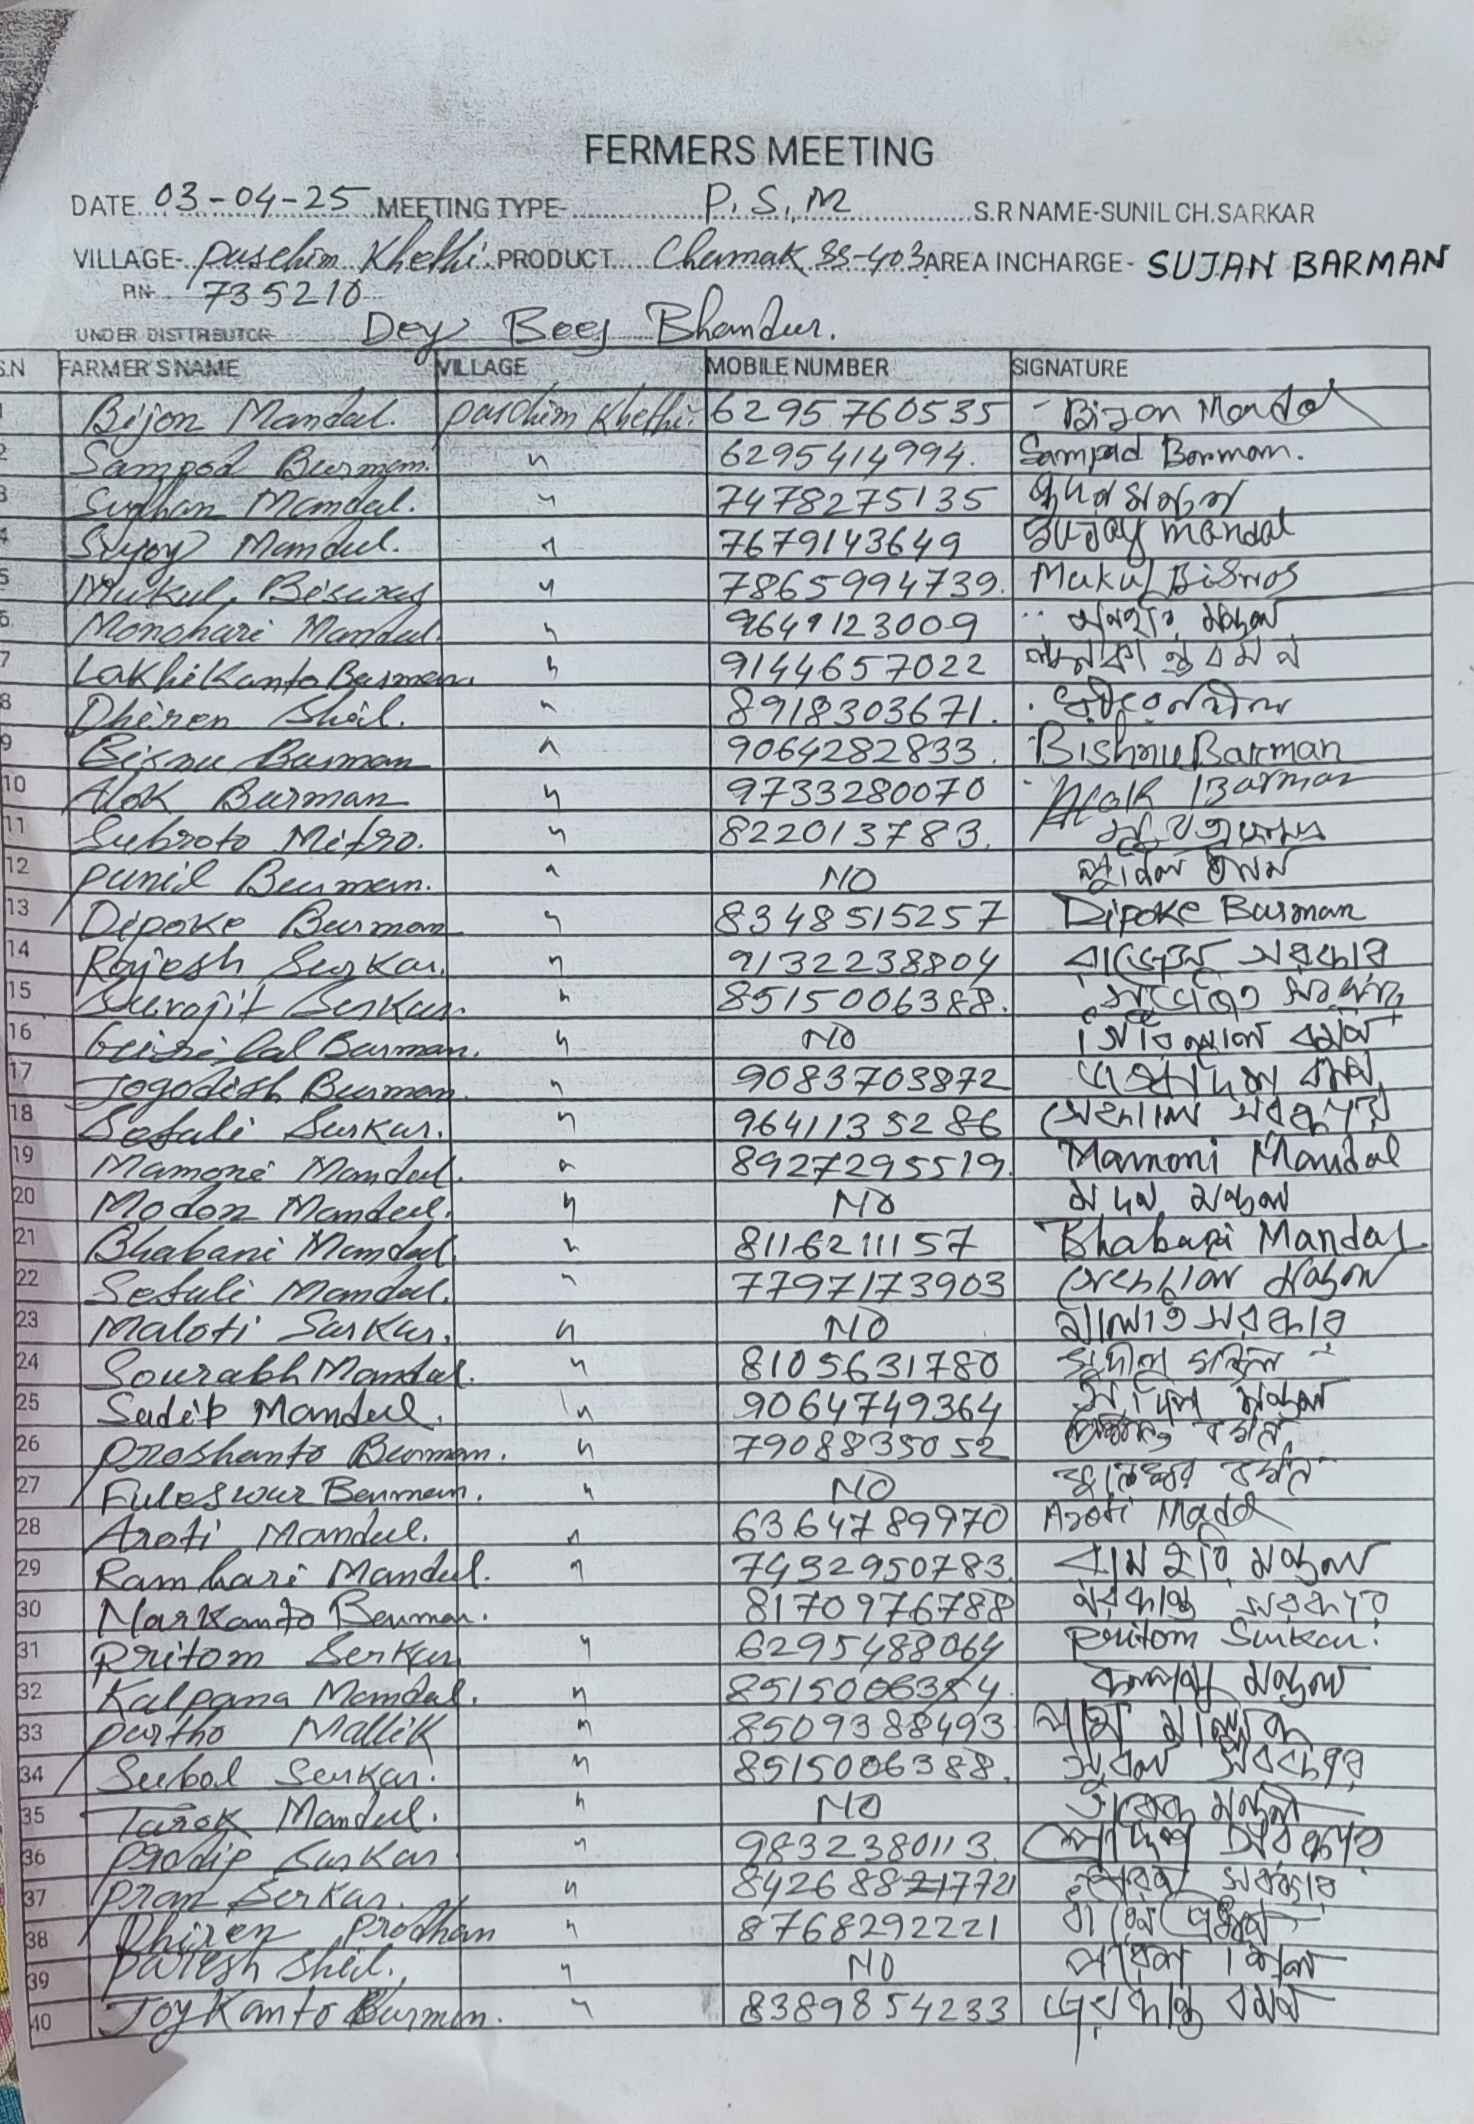 FERMERS MEETING
DATE 03-04-25 MEETING TYPE- P.S.M S.R NAME-SUNIL CH.SARKAR
VILLAGE- Paschim Khethi PRODUCT Chamak SS-403 AREA INCHARGE- SUJAN BARMAN
PIN- 735210
UNDER DISTTRIBUTOR Dey Beej Bhandur.
S.N FARMER'S NAME VILLAGE MOBILE NUMBER SIGNATURE
1 Bijon Mandal. Paschim Khethi. 6295760535 Bijon Mondal
2 Sampod Burman. " 6295414994. Sampad Barman.
3 Sudhan Mandal. " 7478275135 সুধন মন্ডল
4 Sujoy Mandul. " 7679143649 Sujay mandal
5 Mukul Biswas " 7865994739. Mukul Biswos
6 Monohari Mandal. " 9641123009 মনহরি মন্ডল
7 LakhiKanto Barman. " 9144657022
8 Dhiren Shil. " 8918303671.
9 Bisnu Barman " 9064282833. Bishnu Barman
10 Alok Burman " 9733280070 Alok Barman
11 Subroto Mitro. " 822013783.
12 Punil Burman. " NO
13 Dipoke Burman " 8348515257 Dipoke Burman
14 Rajesh Surkar. " 9132238804 সরকার
15 Surojit Serkar. " 8515006388.
16 Lal Burman. " NO বর্মন
17 Jogodish Burman. " 9083703872
18 Sefali Surkar. " 9641135286 সরকার
19 Mamoni Mandul. " 8927295519. Mamoni Mandal
20 Modon Mandul. " NO মদন মন্ডল
21 Bhabani Mandal. " 8116211157 Bhabani Mandal
22 Sefali Mandal. " 7797173903 মন্ডল
23 Maloti Sarkar. " NO মালতি সরকার
24 Sourabh Mandal. " 8105631780
25 Sudip Mandul. " 9064749364 মন্ডল
26 Proshanto Burman. " 7908835052 বর্মন
27 Fuleswar Burman. " NO বর্মন
28 Aroti Mandul. " 6364789970 Aroti Madol
29 Ramhari Mandul. " 7432950783. রাম হরি মন্ডল
30 Narkanto Berman. 8170976788 নরকান্ত সরকার
31 Pritom Serkar " 6295488064 Pritom Surkar.
32 Kalpana Mandal. " 8515006384 কল্পনা মন্ডল
33 Partho Mallik " 8509388493 পার্থ মল্লিক
34 Subol Serkar. " 8515006388. সুবল সরকার
35 Tarok Mandul. " NO তারক মন্ডল
36 Prodip Surkar " 9832380113. সরকার
37 Pran Serkar. " সরকার
38 Dhiren Prodhan " 8768292221
39 Paresh Shil. " NO পরেশ শীল
40 JoyKanto Burman. " 8389854233 জয়কান্ত বর্মন